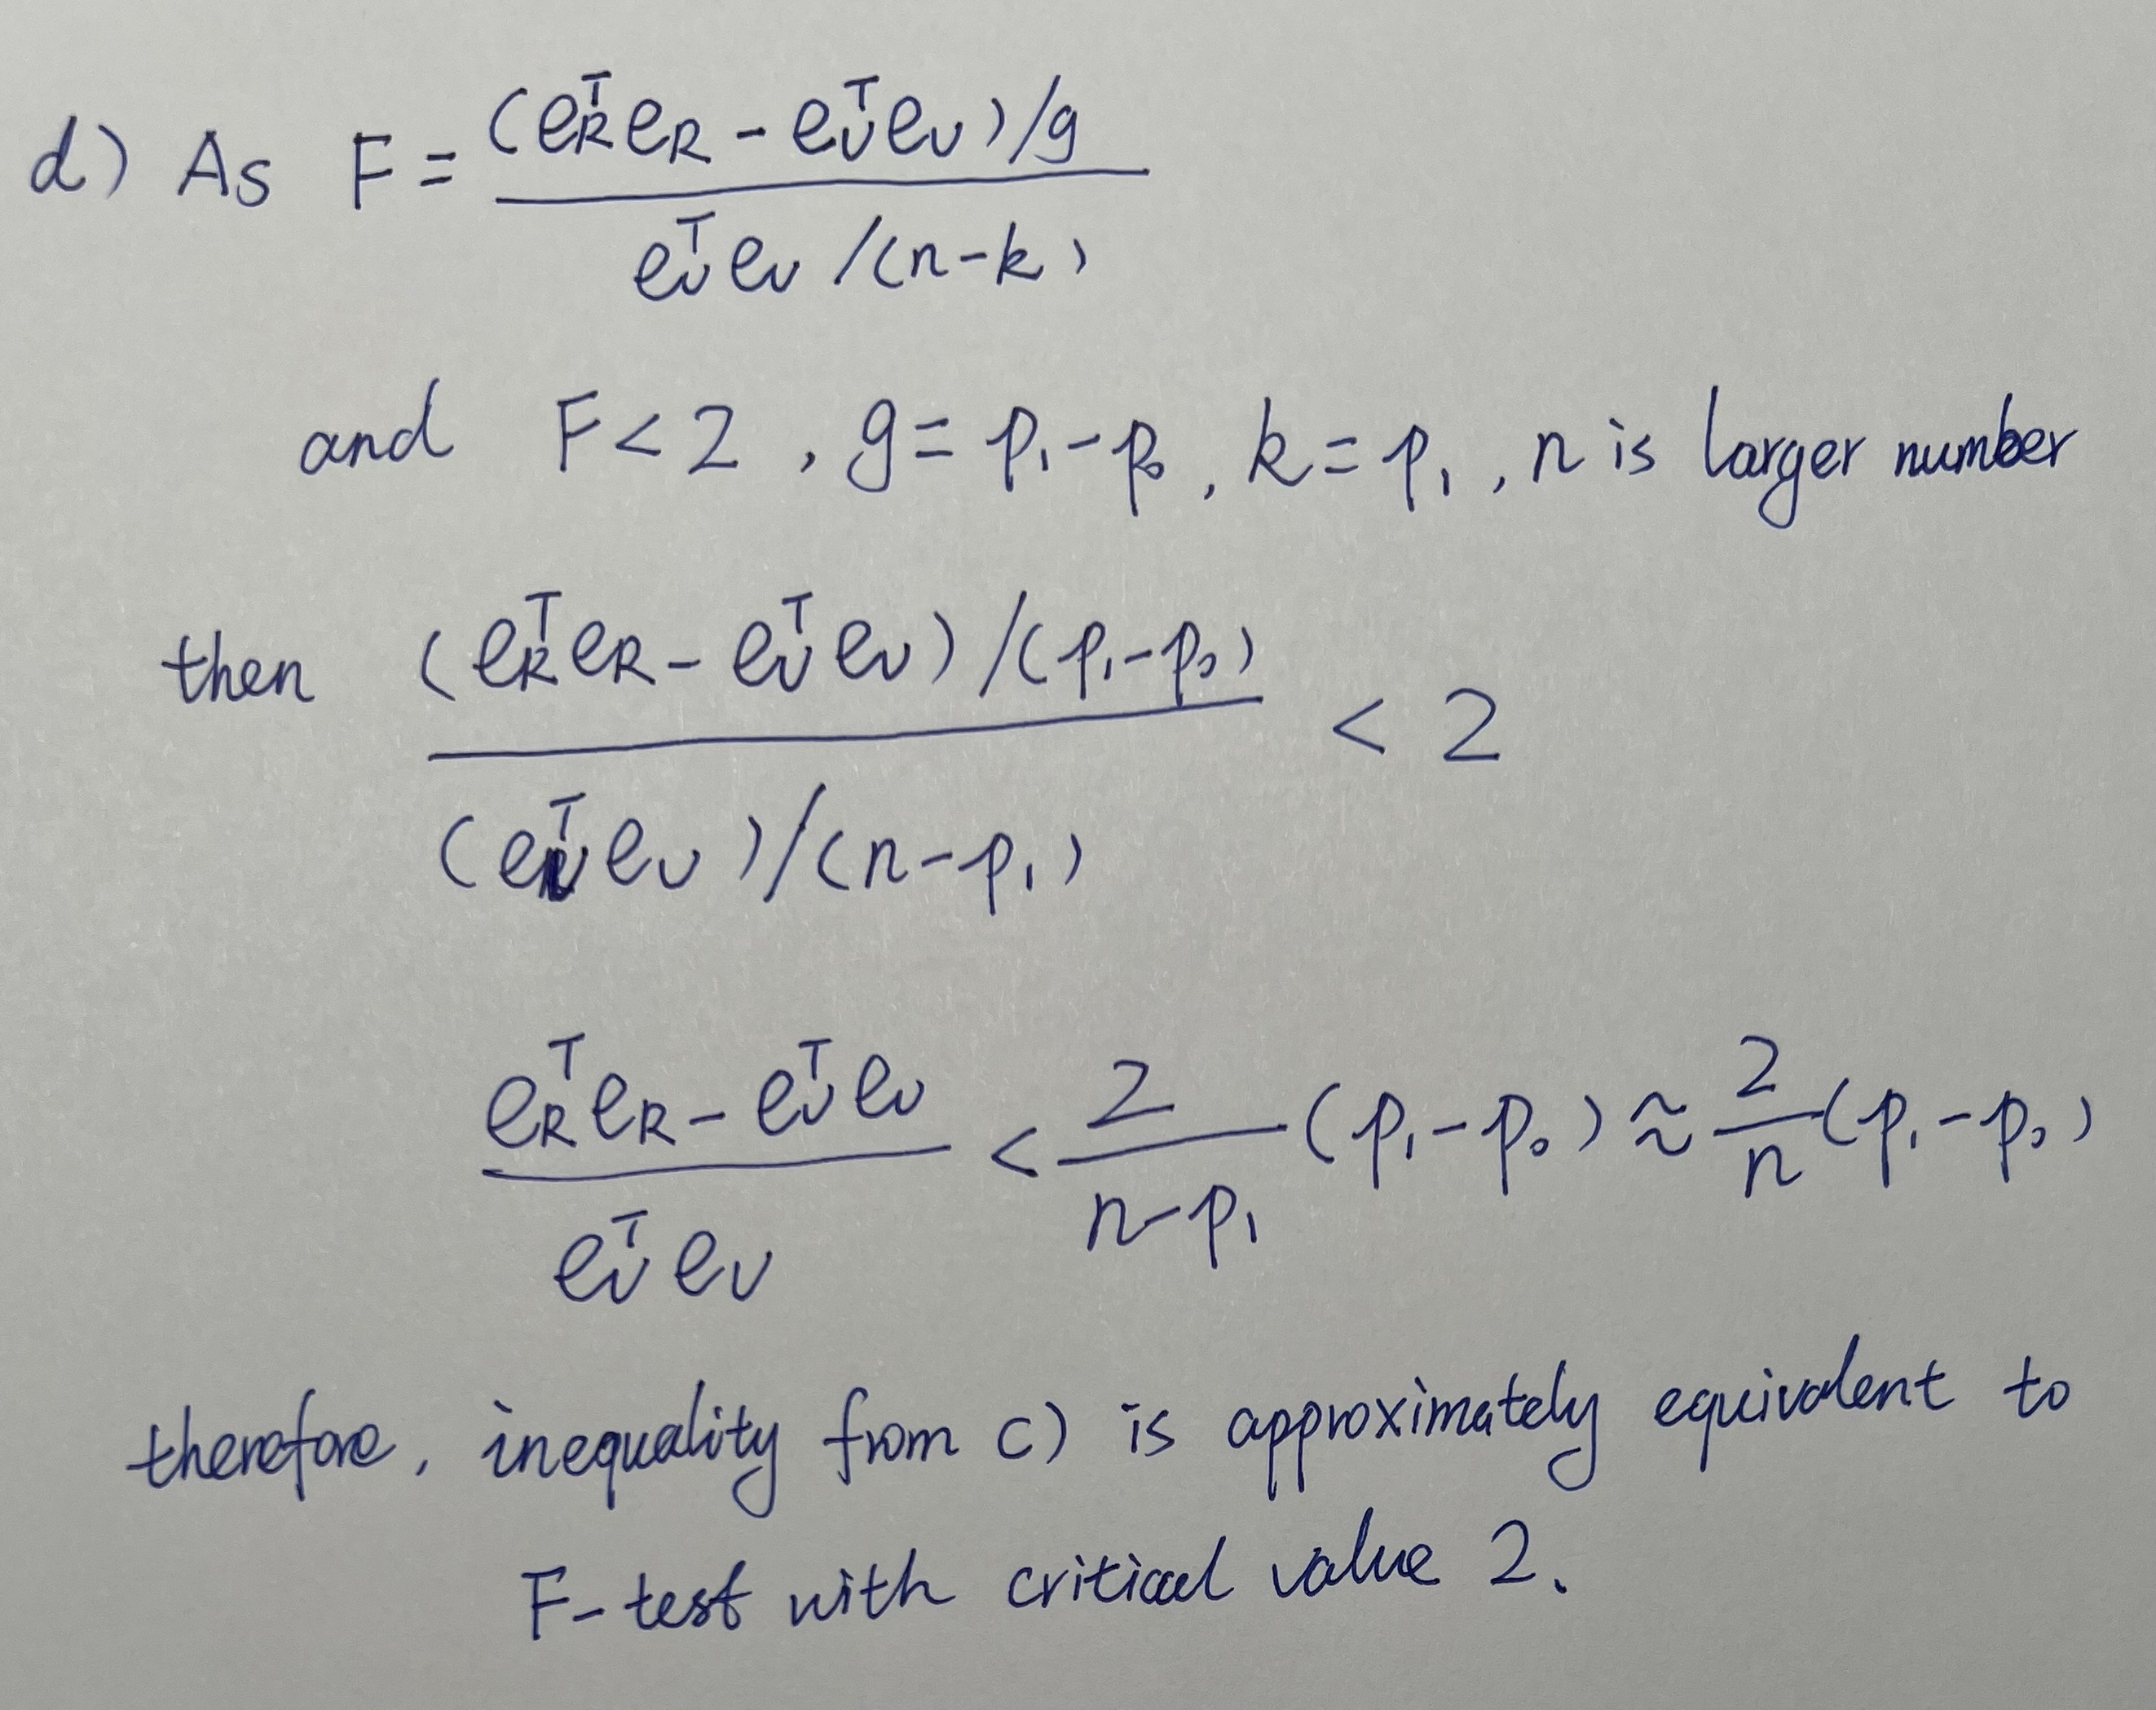 d) As F = (e_R^T e_R - e_U^T e_U)/g / e_U^T e_U/(n-k)
and F < 2, g = p₁-p₀, k = p₁, n is larger number
then (e_R^T e_R - e_U^T e_U)/(p₁-p₀) / (e_U^T e_U)/(n-p₁) < 2
e_R^T e_R - e_U^T e_U / e_U^T e_U < 2/(n-p₁) (p₁-p₀) ≈ 2/n (p₁-p₀)
therefore, inequality from c) is approximately equivalent to
F-test with critical value 2.